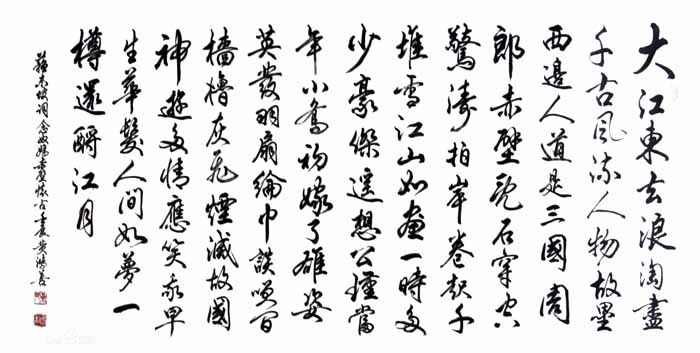 大江東去浪淘盡
千古風流人物故壘
西邊人道是三國周
郎赤壁亂石穿空
驚濤拍岸卷起千
堆雪江山如畫一時多
少豪傑遙想公瑾當
年小喬初嫁了雄姿
英發羽扇綸巾談笑間
檣櫓灰飛煙滅故國
神遊多情應笑我早
生華髮人間如夢一
樽還酹江月
蘇東坡詞念奴嬌赤壁懷古